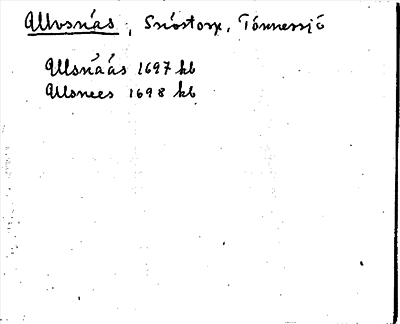 Allvosnäs, Snöstorp, Tönnersjö
Allsnáás 1697 kb
Allsnees 1698 kb